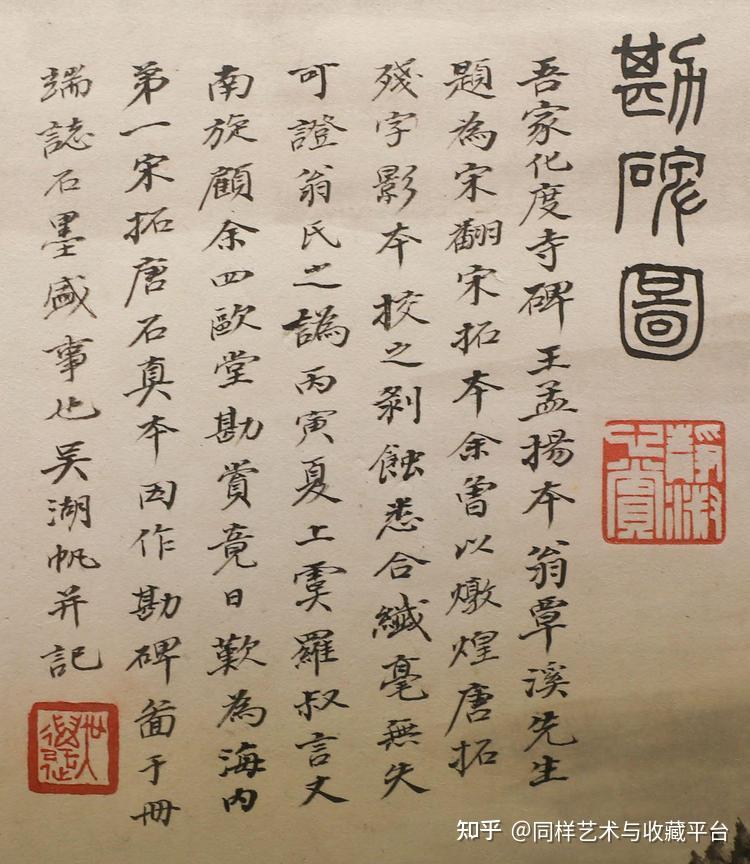 勘碑圖
吾家化度寺碑王孟揚本翁覃溪先生
題為宋翻宋拓本余曾以燉煌唐拓
殘字影本挍之剝蝕悉合纖毫無失
可證翁氏之譌丙寅夏上虞羅叔言丈
南旋顧余四歐堂勘賞竟日歎為海内
第一宋拓唐石真本因作勘碑啚于冊
端誌石墨盛事也吳湖帆并記
知乎 @同样艺术与收藏平台